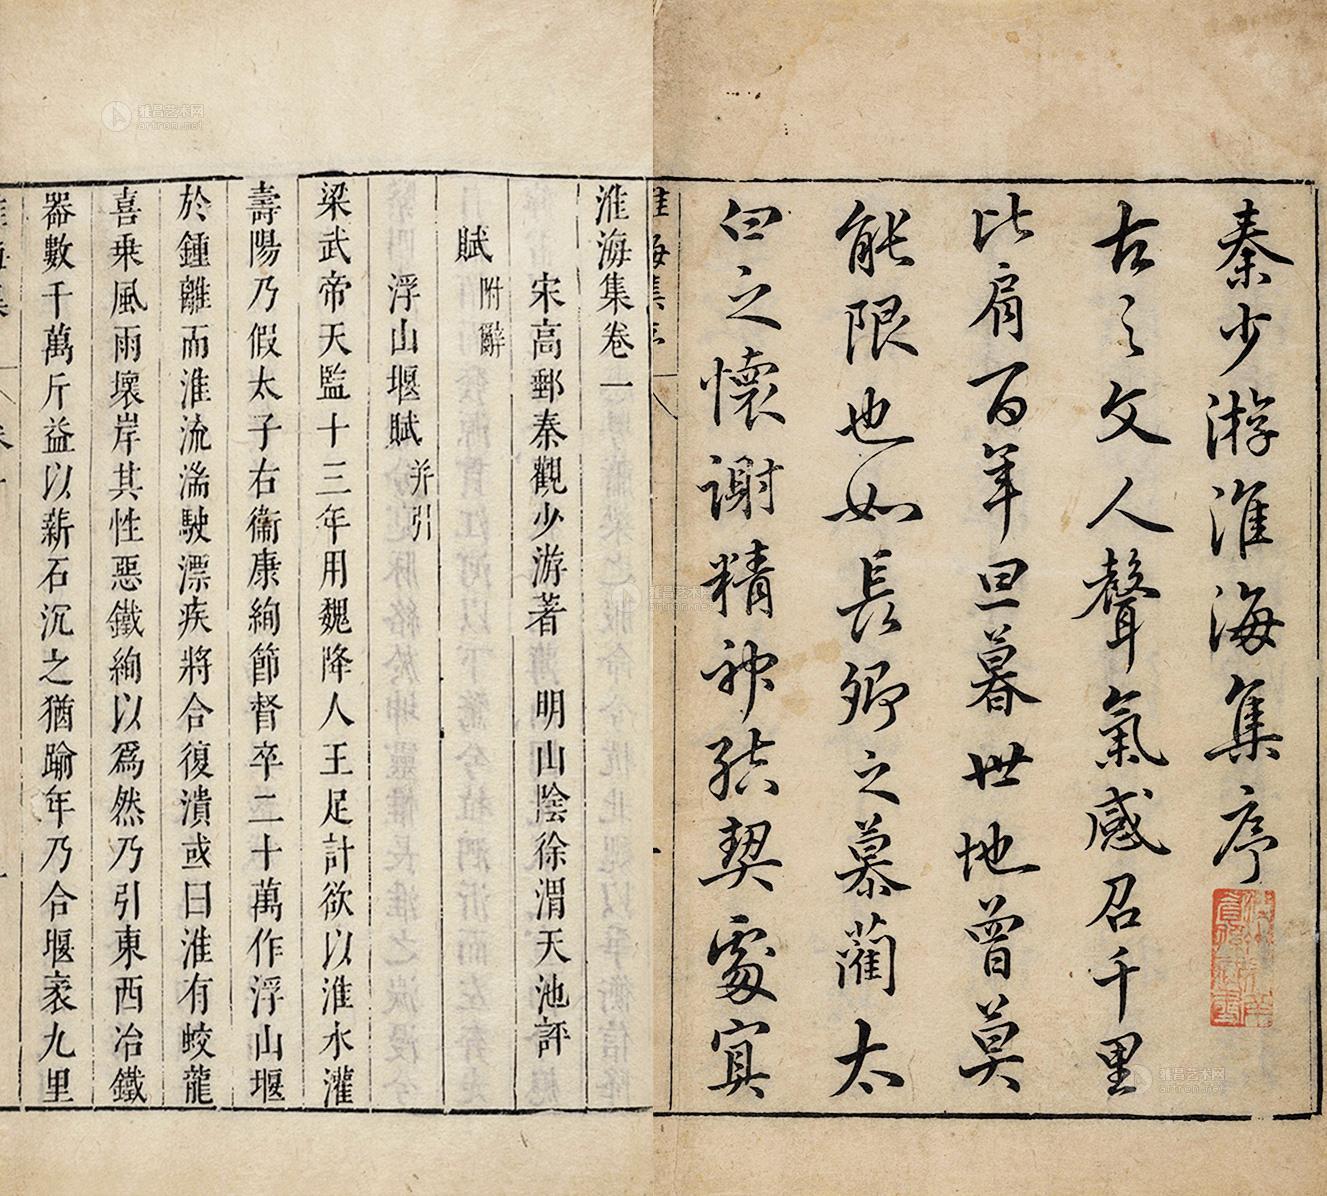 秦少游淮海集序
古之文人聲氣感召千里
比肩百年旦暮世地曾莫
能限也如長卿之慕藺太
白之懷謝精神結契處寘
淮海集卷一
宋高郵秦觀少游著　明山陰徐渭天池評
賦 附辭
浮山堰賦 并引
梁武帝天監十三年用魏降人王足計欲以淮水灌
壽陽乃假太子右衞康絢節督卒二十萬作浮山堰
於鍾離而淮流湍駛漂疾將合復潰或曰淮有蛟龍
喜乘風雨壞岸其性惡鐵絢以爲然乃引東西冶鐵
器數千萬斤益以薪石沉之猶踰年乃合堰袤九里
雅昌艺术网
artron.net